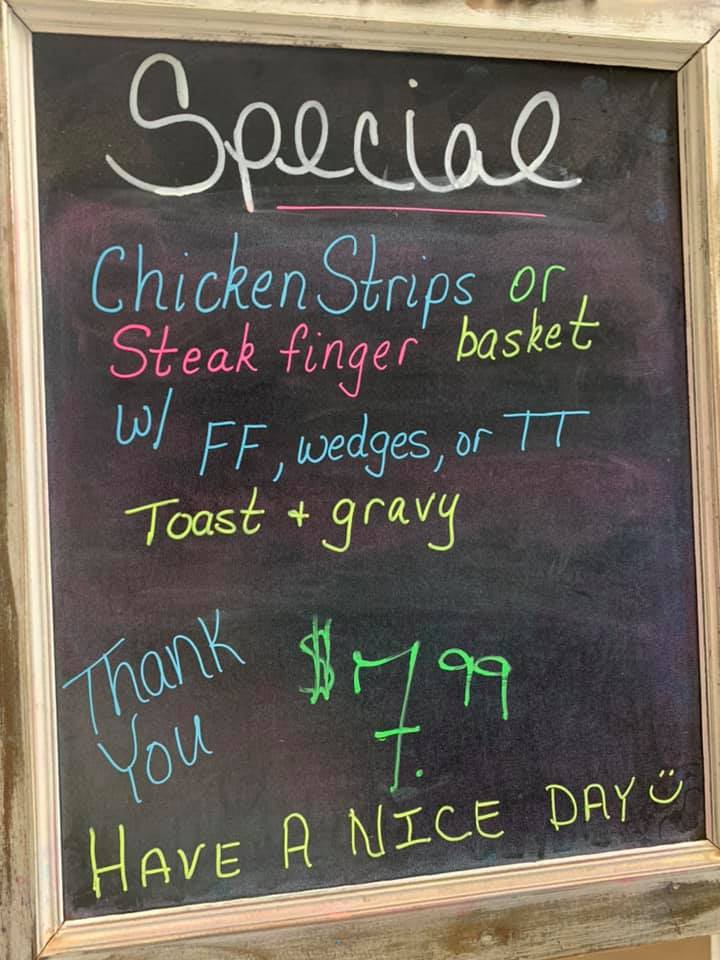 Special
Chicken Strips or
Steak finger basket
w/ FF, wedges, or TT
Toast + gravy
Thank
You
$7.99
HAVE A NICE DAY